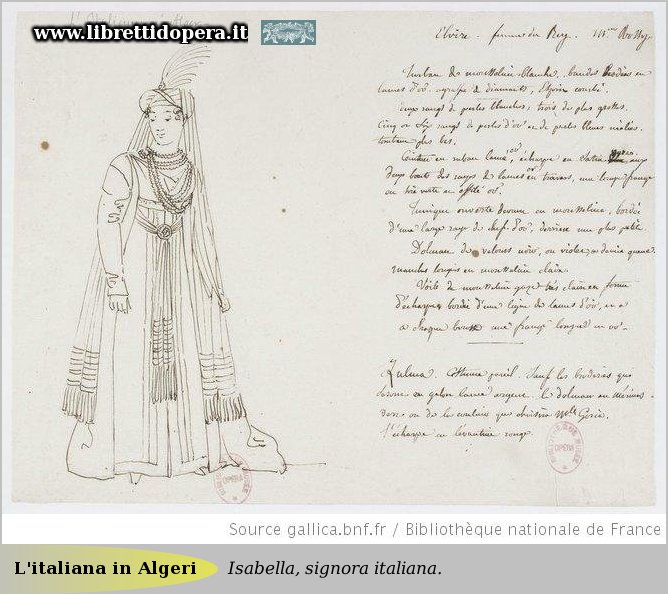 www.librettidopera.it
Elvire. femme du Bey. M.me Rossy.
Turban de mousseline blanche, bandes brodées en
lames d'or. agrafe de diamants, couché.
deux rangs de perles blanches, trois de plus grosses.
Cinq ou Six rangs de perles d'or et de perles bleues mêlées.
tombant plus bas.
Ceinture en ruban lamé or, écharpe en aux
deux bouts des rayes de lames or en travers, une longue frange
ou en effilé or.
Tunique ouverte devant en mousseline, bordée
d'une large raye de chef d'or, derrière une plus petite.
Dolman de velours noir, ou violet a demie queue.
manches longues en mousseline claire.
Voile de mousseline gaze très claire en forme
d'écharpe bordée d'une ligne de lames d'or, et a
a chaque bout une frange longue en or.
Zulma. Costume pareil. Sauf les broderies qui
seront en galon lamé argent. le dolman en mérinos
ou de la couleur que choisira Mlle
l'écharpe en levantine rouge.
OPERA
Source gallica.bnf.fr / Bibliothèque nationale de France
L'italiana in Algeri
Isabella, signora italiana.